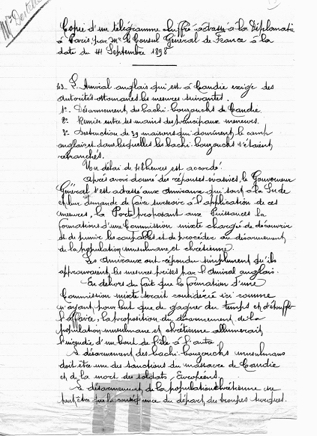 Copie d'un télégramme chiffré adressé à la Diplomatie
à Paris par Mr le Consul Général de France à la
date du 11 Septembre 1898
63. L'Amiral anglais qui est à Candie exige des
autorités ottomanes les mesures suivantes.
1° Désarmement des bachi-bouzouks de Candie.
2° Remise entre les mains des principaux meneurs.
3° Destruction de maisons qui dominent le camp
anglais et dans lesquelles les bachi-bouzouks s'étaient
retranchés.
Un délai de heures est accordé.
Après avoir donné des réponses évasives le Gouverneur
Général s'est adressé aux Amiraux qui sont à la Sude
et leur demande de faire surseoir à l'application de ces
mesures, la Porte proposant aux Puissances la
formation d'une Commission mixte chargée de découvrir
et de punir les coupables et de procéder au désarmement
de la population musulmane et chrétienne.
Les Amiraux ont répondu simplement qu'ils
approuvaient les mesures prises par l'Amiral anglais.
En dehors du fait que la formation d'une
Commission mixte serait considérée ici comme
n'ayant pour but que de gagner du temps et d'étouffer
l'affaire, la proposition du désarmement de la
population musulmane et chrétienne allumerait
l'incendie d'un bout de l'île à l'autre.
Le désarmement des bachi-bouzouks musulmans
doit être une des sanctions du massacre de Candie
et de la mort des soldats Européens.
Le désarmement de la population chrétienne ne
peut être que la conséquence du départ des troupes turques.